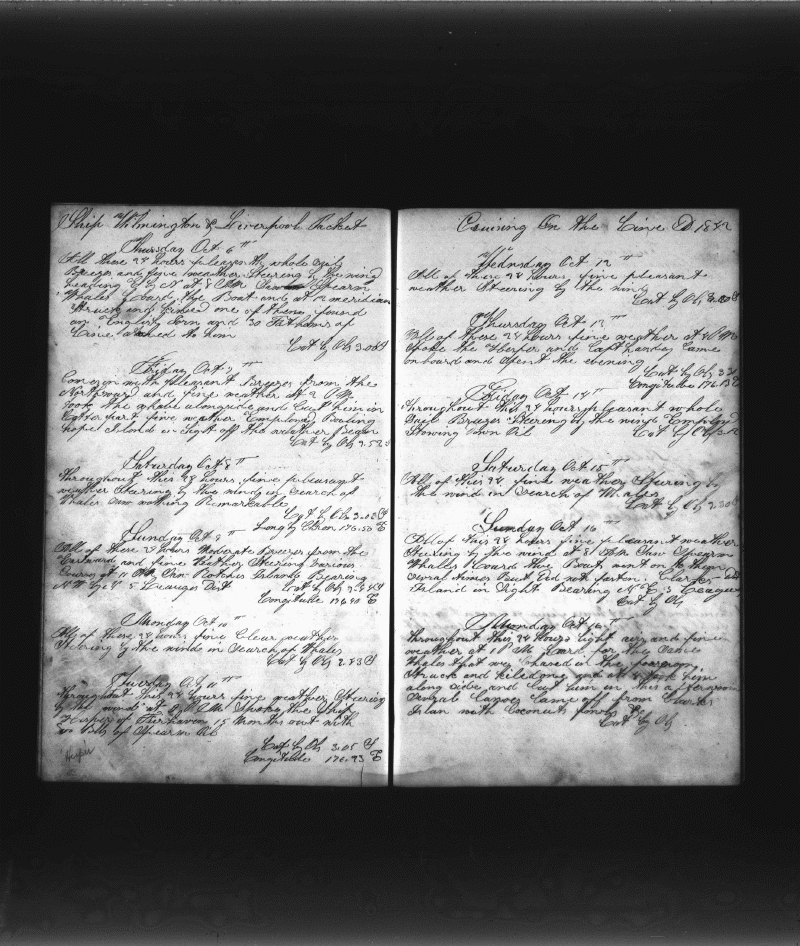 Ship Wilmington & Liverpool Packet
Thursday Oct 6th
All these 24 hours pleasant whole sail
Breezes and fine weather Steering by the wind
heading by N at 8 AM Saw Sperm
Whales Lowered the Boat and at 12 meridian
Struck and Killed one of them found
an English Iron and 30 Fathoms of
Line attached to him
Lat by Ob 3.06 S
Friday Oct 7th
Comes in with pleasant Breezes from the
Northward and fine weather at 2 PM
took the whale alongside and Cut him in
Latter part fine weather Employed Boiling
hope Island in Sight off the weather Beam
Lat by Ob 2.52 S
Saturday Oct 8th
throughout this 24 hours fine pleasant
weather Steering by the wind in Search of
Whales Saw nothing Remarkable
Lat by Ob 3.12 S
Long by Chron 176.50 E
Sunday Oct 9th
All of these 24 hours Moderate Breezes from the
Eastward and fine weather Steering various
Courses at 11 AM Saw Rotches Island Bearing
5 Leagues Dist Lat by Ob
Longitude 176.40 E
Monday Oct 10th
All of these 24 hours fine Clear weather
Steering by the wind in Search of Whales
Lat by Ob 2.43 S
Tuesday Oct 11th
throughout this 24 hours fine weather Steering
by the wind at PM Spoke the Ship
Hesper of Fairhaven 15 Months out with
Bbls of Sperm Oil
Hesper
Lat by Ob 3.05 S
Longitude 176.43 E
Cruising On the Line D 1842
Wednsday Oct 12th
All of these 24 hours fine pleasant
weather Steering by the wind
Lat by Ob
Thursday Oct 13th
All of these 24 hours fine weather at PM
Spoke the Hesper and Capt handy Came
onboard and Spent the evening
Lat by Ob
Longitude 176.13 E
Friday Oct 14th
throughout this 24 hours pleasant whole
Sail Breezes Steering by the wind Employed
Stowing down Oil Lat by Ob 3.12
Saturday Oct 15th
All of this 24 fine weather Steering by
the wind in Search of Whales
Lat by Ob 2.30 S
Sunday Oct 16th
All of this 24 hours fine pleasant weather
Steering by the wind at 8 AM Saw Sperm
Whales Lowerd the Boats went on to them
Several times But did not fasten Clarks
Island in Sight Bearing 3 Leagues
Lat by Ob
Monday Oct
throughout this 24 hours light airs and fine
weather at 1 PM Lowerd for the Same
Whales that we Chased in the forenoon
Struck and Killed one and at took him
along side and Cut him in this afternoon
Several Canoes Came off from Clarks
Islan with Coconuts fowls &c
Lat by Ob